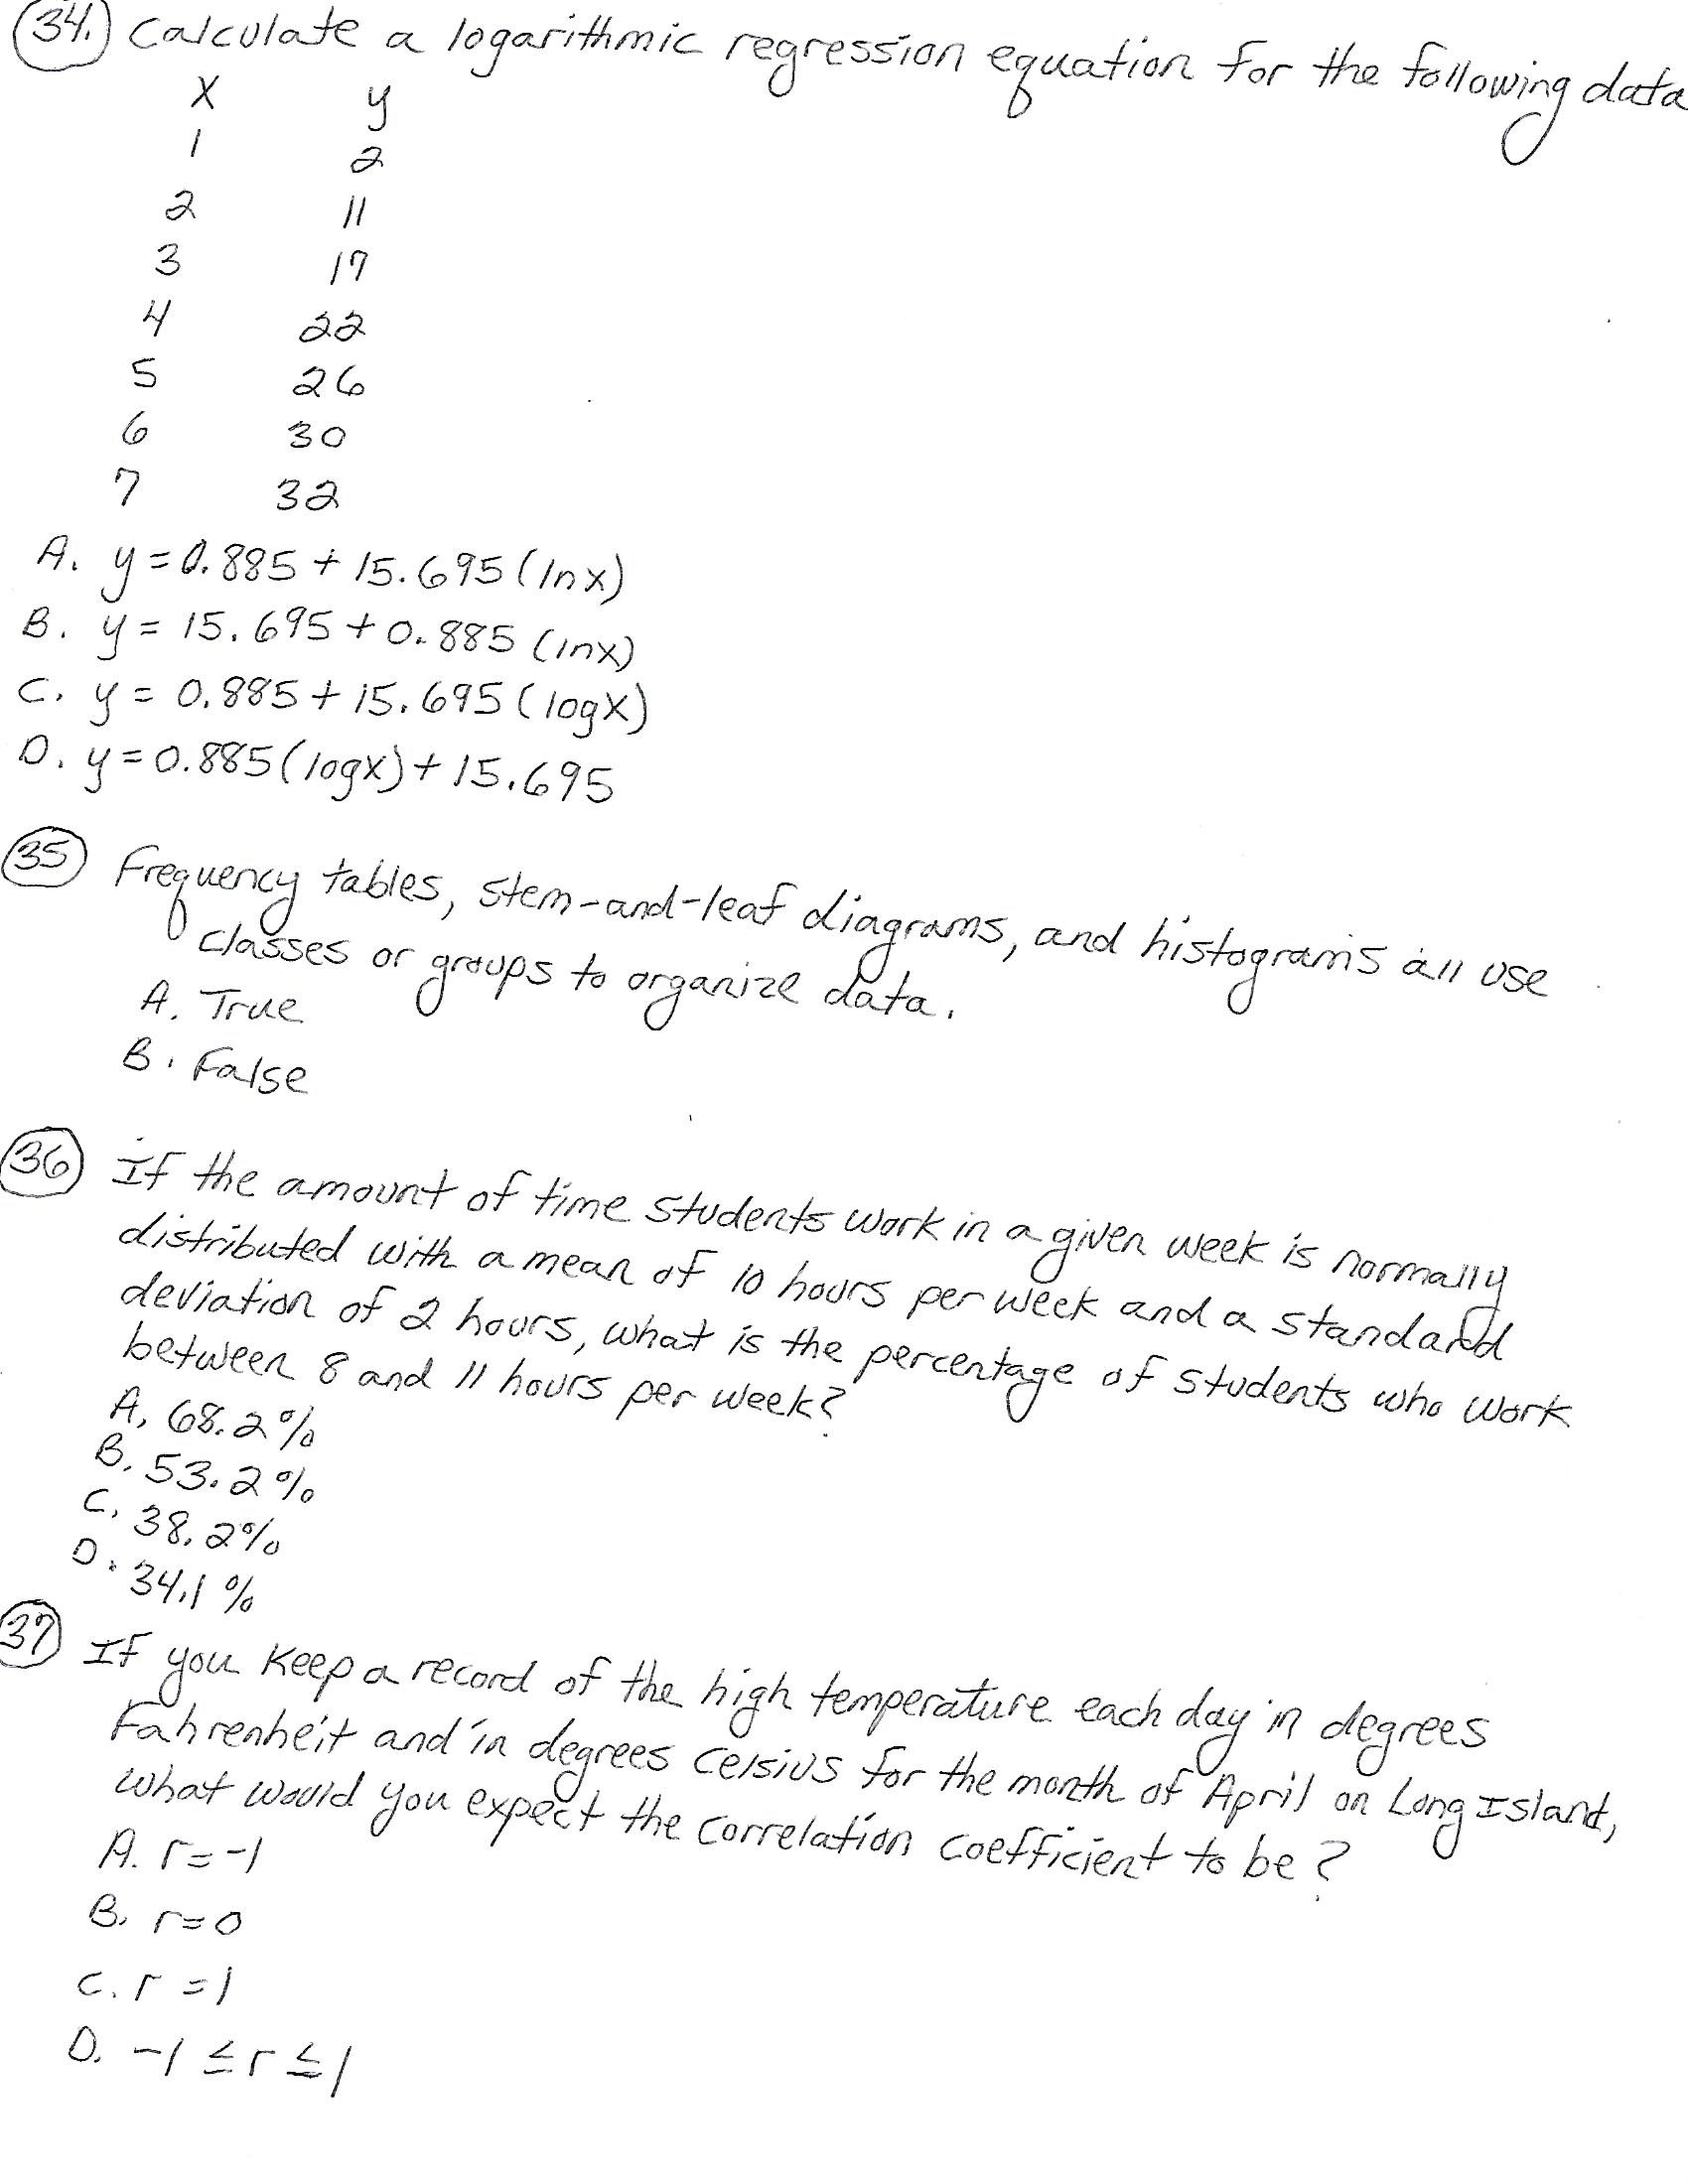 34. Calculate a logarithmic regression equation for the following data
x y
1 2
2 11
3 17
4 22
5 26
6 30
7 32
A. y = 0.885 + 15.695 (lnx)
B. y = 15.695 + 0.885 (lnx)
C. y = 0.885 + 15.695 (logx)
D. y = 0.885 (logx) + 15.695
35 Frequency tables, stem-and-leaf diagrams, and histograms all use
classes or groups to organize data.
A. True
B. False
36 If the amount of time students work in a given week is normally
distributed with a mean of 10 hours per week and a standard
deviation of 2 hours, what is the percentage of students who work
between 8 and 11 hours per week?
A. 68.2%
B. 53.2%
C. 38.2%
D. 34.1%
37 If you keep a record of the high temperature each day in degrees
Fahrenheit and in degrees Celsius for the month of April on Long Island,
what would you expect the correlation coefficient to be?
A. r = -1
B. r = 0
C. r = 1
D. -1 ≤ r ≤ 1